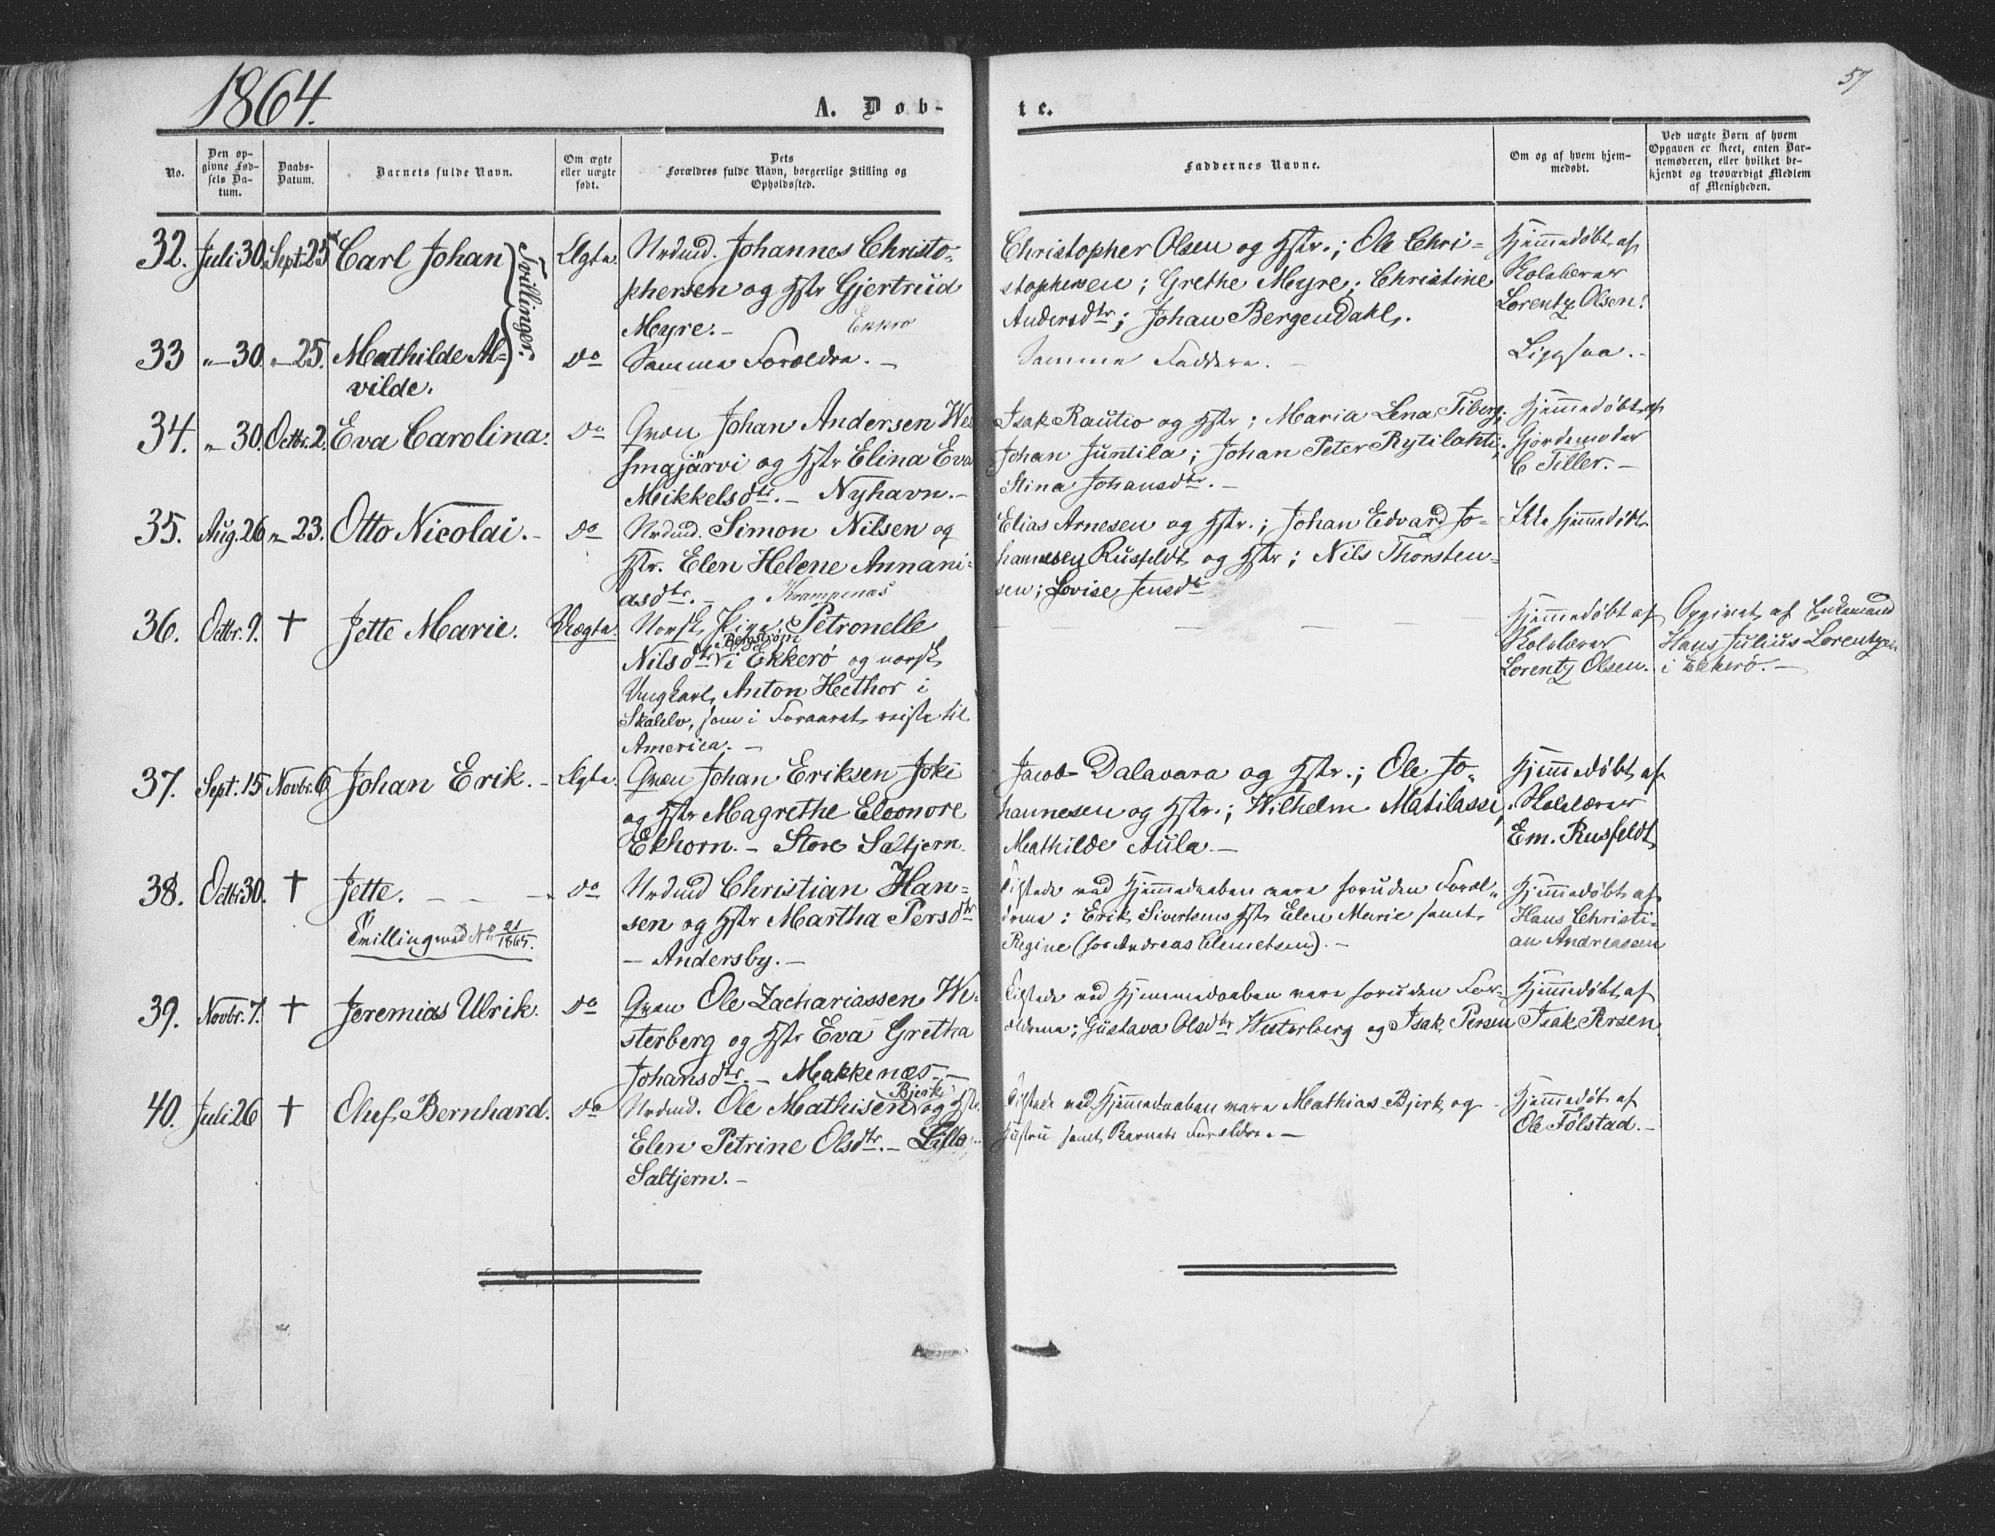 1864.
57
A. Døb-
te.
No.
Den opgivne Fødsels Datum.
Daabs-Datum.
Barnets fulde Navn.
Om ægte eller uægte født.
Dets Forældres fulde Navn, borgerlige Stilling og Opholdssted.
Faddernes Navne.
Om og af hvem hjemmedøbt.
Ved uægte Børn af hvem Opgaven er skeet, enten Barnemoderen, eller hvilket bekjendt og troværdigt Medlem af Menigheden.
32. Juli 30. Sept. 25 Carl Johan Ægte. Nrdmd. Johannes Christo-
phersen og Hstr Gjertrud
Myre. – Ekkerø
Tvillinger.
Christopher Olsen og Hstr.; Ole Chri-
stophersen; Grethe Myre; Christine
Andersdtr; Johan Bergendahl.
Hjemmedøbt af
Skolelærer
Lorentz Olsen.
33 " – 30. " – 25. Mathilde Al-
vilde.
do Samme Forældre. –
Samme Faddere. –
Ligesaa. –
34. " – 30. Octbr. 2. Eva Carolina. do Qvæn Johan Andersen
og Hstr Elina Eva
Mikkelsdtr. – Nyhavn. –
Isak Rautio og Hstr; Maria Lena Tiberg;
Johan Juntila; Johan Peter Rytilahti;
Stina Johansdtr. –
Hjemmedøbt af
Gjordemoder
C Tiller. –
35. Aug. 26 " – 23. Otto Nicolai. – do Nrdmd. Simon Nilsen og
Hstr. Elen Helene Annani-
asdtr. – Krampenæs
Elias Arnesen og Hstr.; Johan Edvard Jo-
hannesen Rusfeldt og Hstr; Nils Thorsten-
sen; Lovise Jensdtr
Ikke hjemmedøbt.
36. Octbr. 9. † Jette Marie. Uægte. Norsk Pige Petronelle
Nilsdtr Bergstrøm i Ekkerø og norsk
Ungkarl Anton Hecthor i
Skalelv, som i Foraaret reiste til
America. –
Hjemmedøbt af
Skolelærer
Lorentz Olsen.
Opgivet af Enkemand
Hans Julius Lorentzen
i Ekkerø. –
37. Sept. 15 Novbr. 6 Johan Erik. – Ægte. Qvæn Johan Eriksen Joki
og Hstr Magrethe Eleonore
Ekhorn. – Store Saltjern.
Jacob Dalavara og Hstr.; Ole Jo-
hannesen og Hstr.; Wilhelm Matilassi,
Mathilde Aula. –
Hjemmedøbt af
Skolelærer
Em. Rusfeldt
38. Octbr 30. † Jette. – – – do Nrdmd Christian Han-
sen og Hstr Martha Persdtr
– Andersby. –
Tvilling med No 21/1865.
Tilstede ved Hjemmedaaben vare foruden Foræl-
drene: Erik Sivertsens Hstr Elen Marie samt
Regine (hos Andreas Clemetsen). –
Hjemmedøbt af
Hans Christi-
an Andreassen
39. Novbr. 7. † Jeremias Ulrik. do Qvæn Ole Zachariassen We-
sterberg og Hstr Eva Gretha
Johansdtr. – Makkenæs. –
Tilstede ved Hjemmedaaben vare foruden For-
ældrene: Gustava Olsdtr Westerberg og Isak Persen
Hjemmedøbt af
Isak Persen.
40. Juli 26 † Oluf Bernhard. do Nrdmd. Ole Mathisen Bjerk og Hstr.
Elen Petrine Olsdtr. – Lille
Saltjern. –
Tilstede ved Hjemmedaaben vare Mathias Bjerk og
Hustru samt Barnets Forældre. –
Hjemmedøbt af
Ole Følstad. –